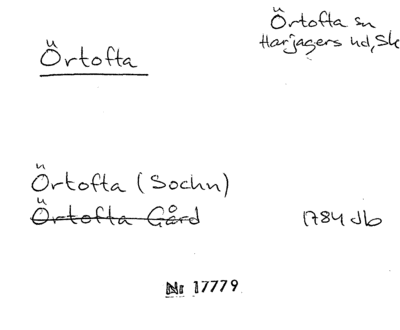 Örtofta
Örtofta sn
Harjagers hd, Sk
Örtofta (Sochn)
Örtofta Gård
1784 Jb
Nr 17779